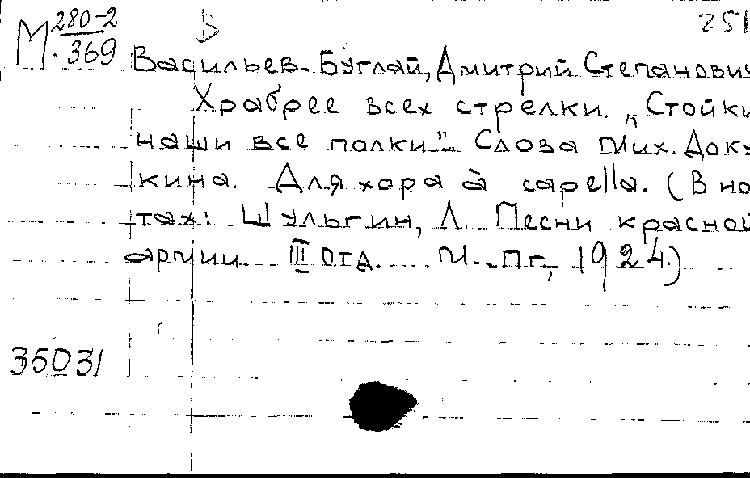 М 280-2 В 251
369
Васильев-Буглай, Дмитрий Степанович
Храбрее всех стрелки. „Стойки
наши все полки". Слова Мих. Док-
кина. Для хора à capella. (В но
тах: Шульгин, Л. Песни красной
армии. III отд. М.-Пг, 1924.)
35031